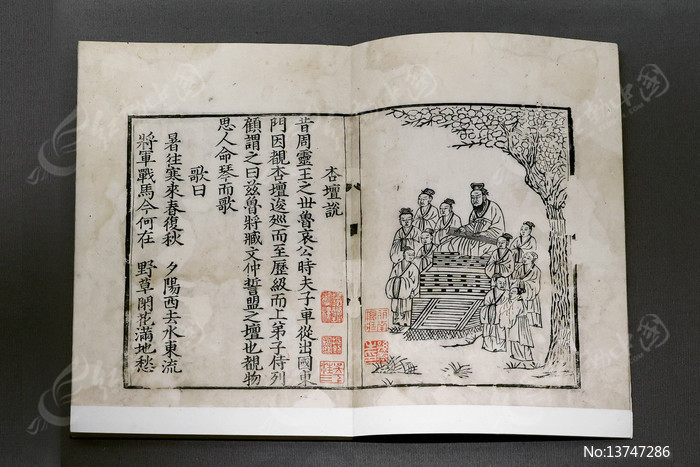 杏壇說
昔周靈王之世魯哀公時夫子車從出國東
門因觀杏壇逡廵而至歷級而上弟子侍列
顧謂之曰兹魯將臧文仲誓盟之壇也覩物
思人命琴而歌
歌曰
暑往寒來春復秋 夕陽西去水東流
將軍戰馬今何在 野草閒花滿地愁
No:13747286